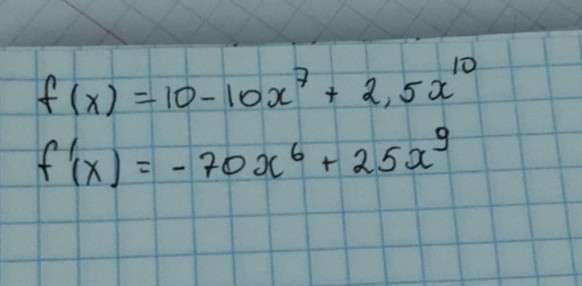 f(x) = 10 - 10x⁷ + 2,5x¹⁰
f'(x) = - 70x⁶ + 25x⁹